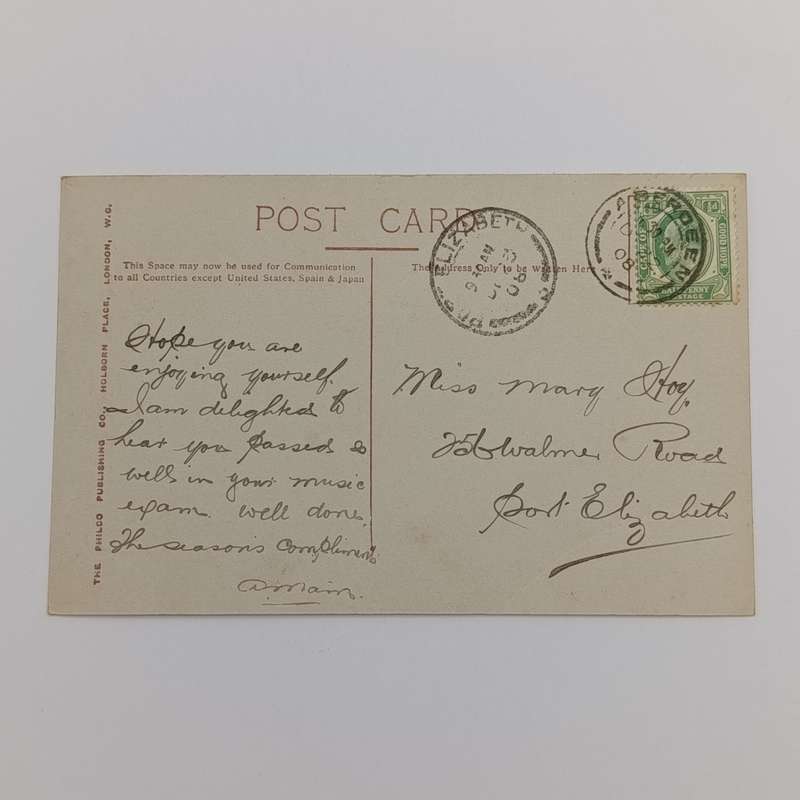 POST CARD
This Space may now be used for Communication
to all Countries except United States, Spain & Japan
The Address Only to be Written Here
THE PHILCO PUBLISHING CO., HOLBORN PLACE, LONDON, W.C.
Hope you are
enjoying yourself.
I am delighted to
hear you passed so
well in your music
exam. well done.
The season's Compliments
Miss Mary Hoy.
Walmer Road
Port Elizabeth
ELIZABETH
AM
08
ABERDEEN
AM
08
GOOD HOPE
HALFPENNY
POSTAGE